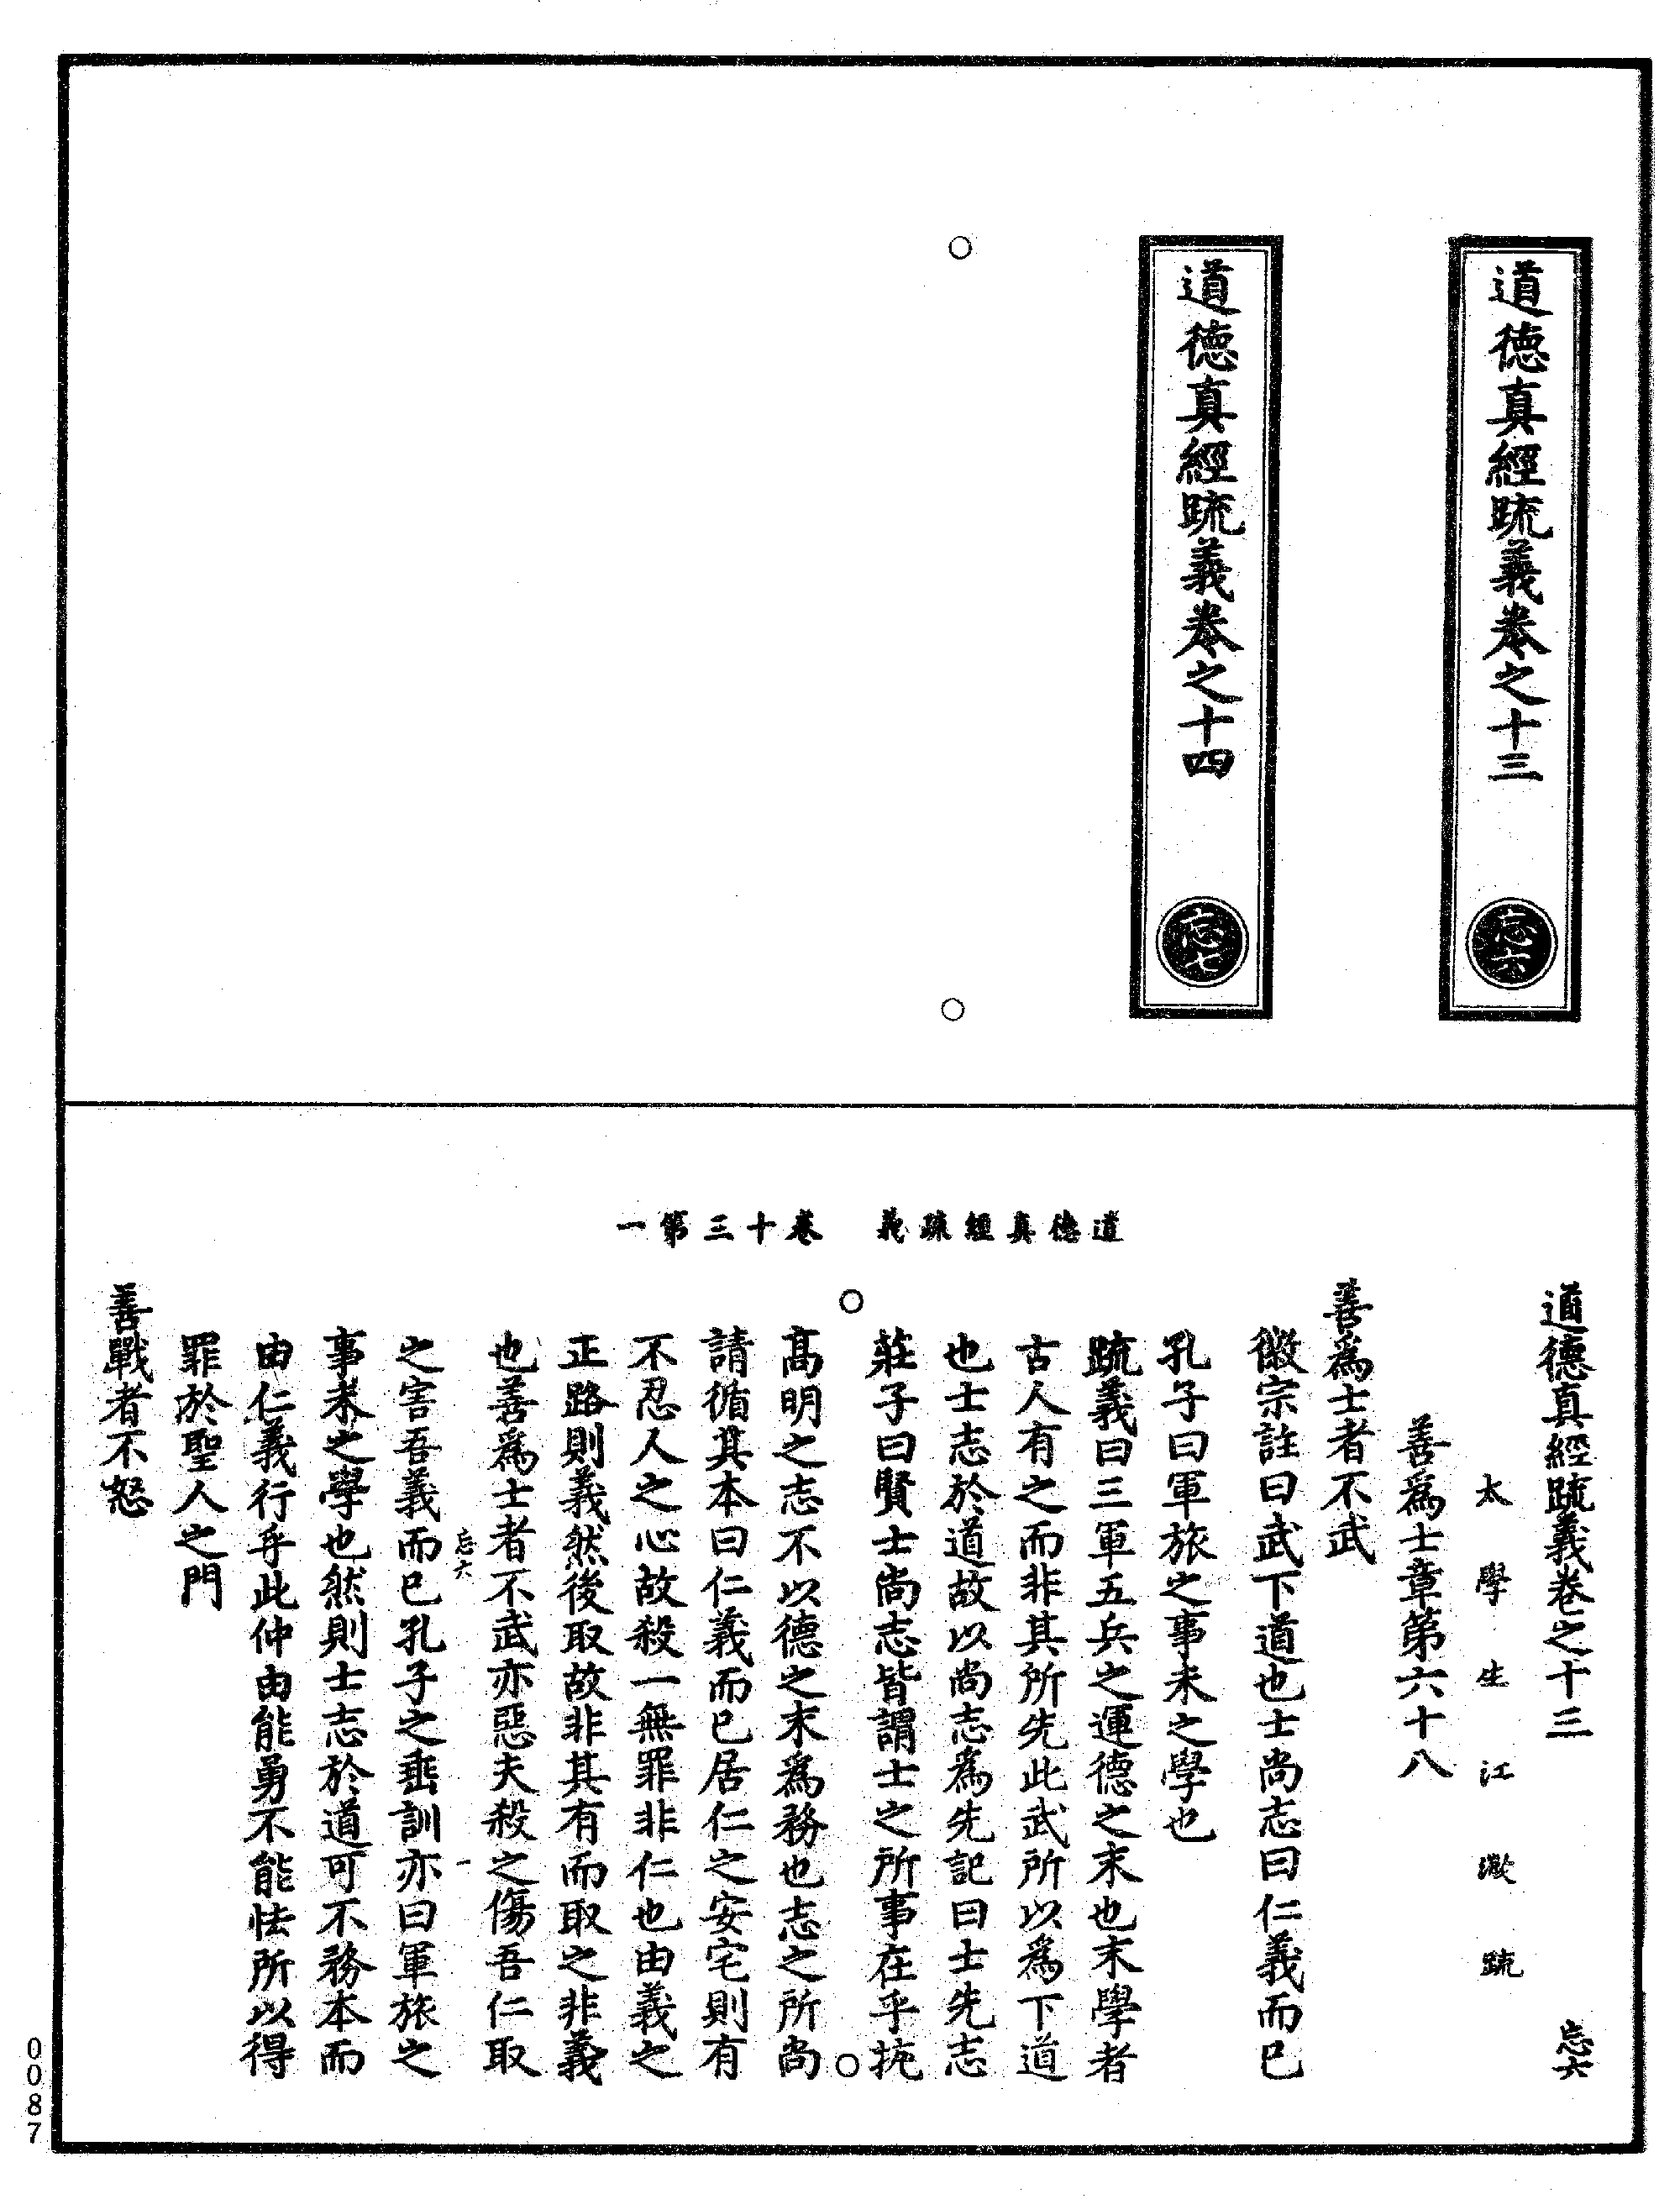 道德真經疏義卷之十三
忘六
道德真經疏義卷之十四
忘七
道德真經疏義 卷十三第一
道德真經疏義卷之十三 忘六
太學生江澂疏
善為士章第六十八
善為士者不武
徽宗註曰武下道也士尚志曰仁義而已
孔子曰軍旅之事未之學也
疏義曰三軍五兵之運德之末也末學者
古人有之而非其所先此武所以為下道
也士志於道故以尚志為先記曰士先志
莊子曰賢士尚志皆謂士之所事在乎抗
高明之志不以德之末為務也志之所尚
請循其本曰仁義而已居仁之安宅則有
不忍人之心故殺一無罪非仁也由義之
正路則義然後取故非其有而取之非義
也善為士者不武亦惡夫殺之傷吾仁取
忘六 一
之害吾義而已孔子之垂訓亦曰軍旅之
事未之學也然則士志於道可不務本而
由仁義行乎此仲由能勇不能怯所以得
罪於聖人之門
善戰者不怒
0087